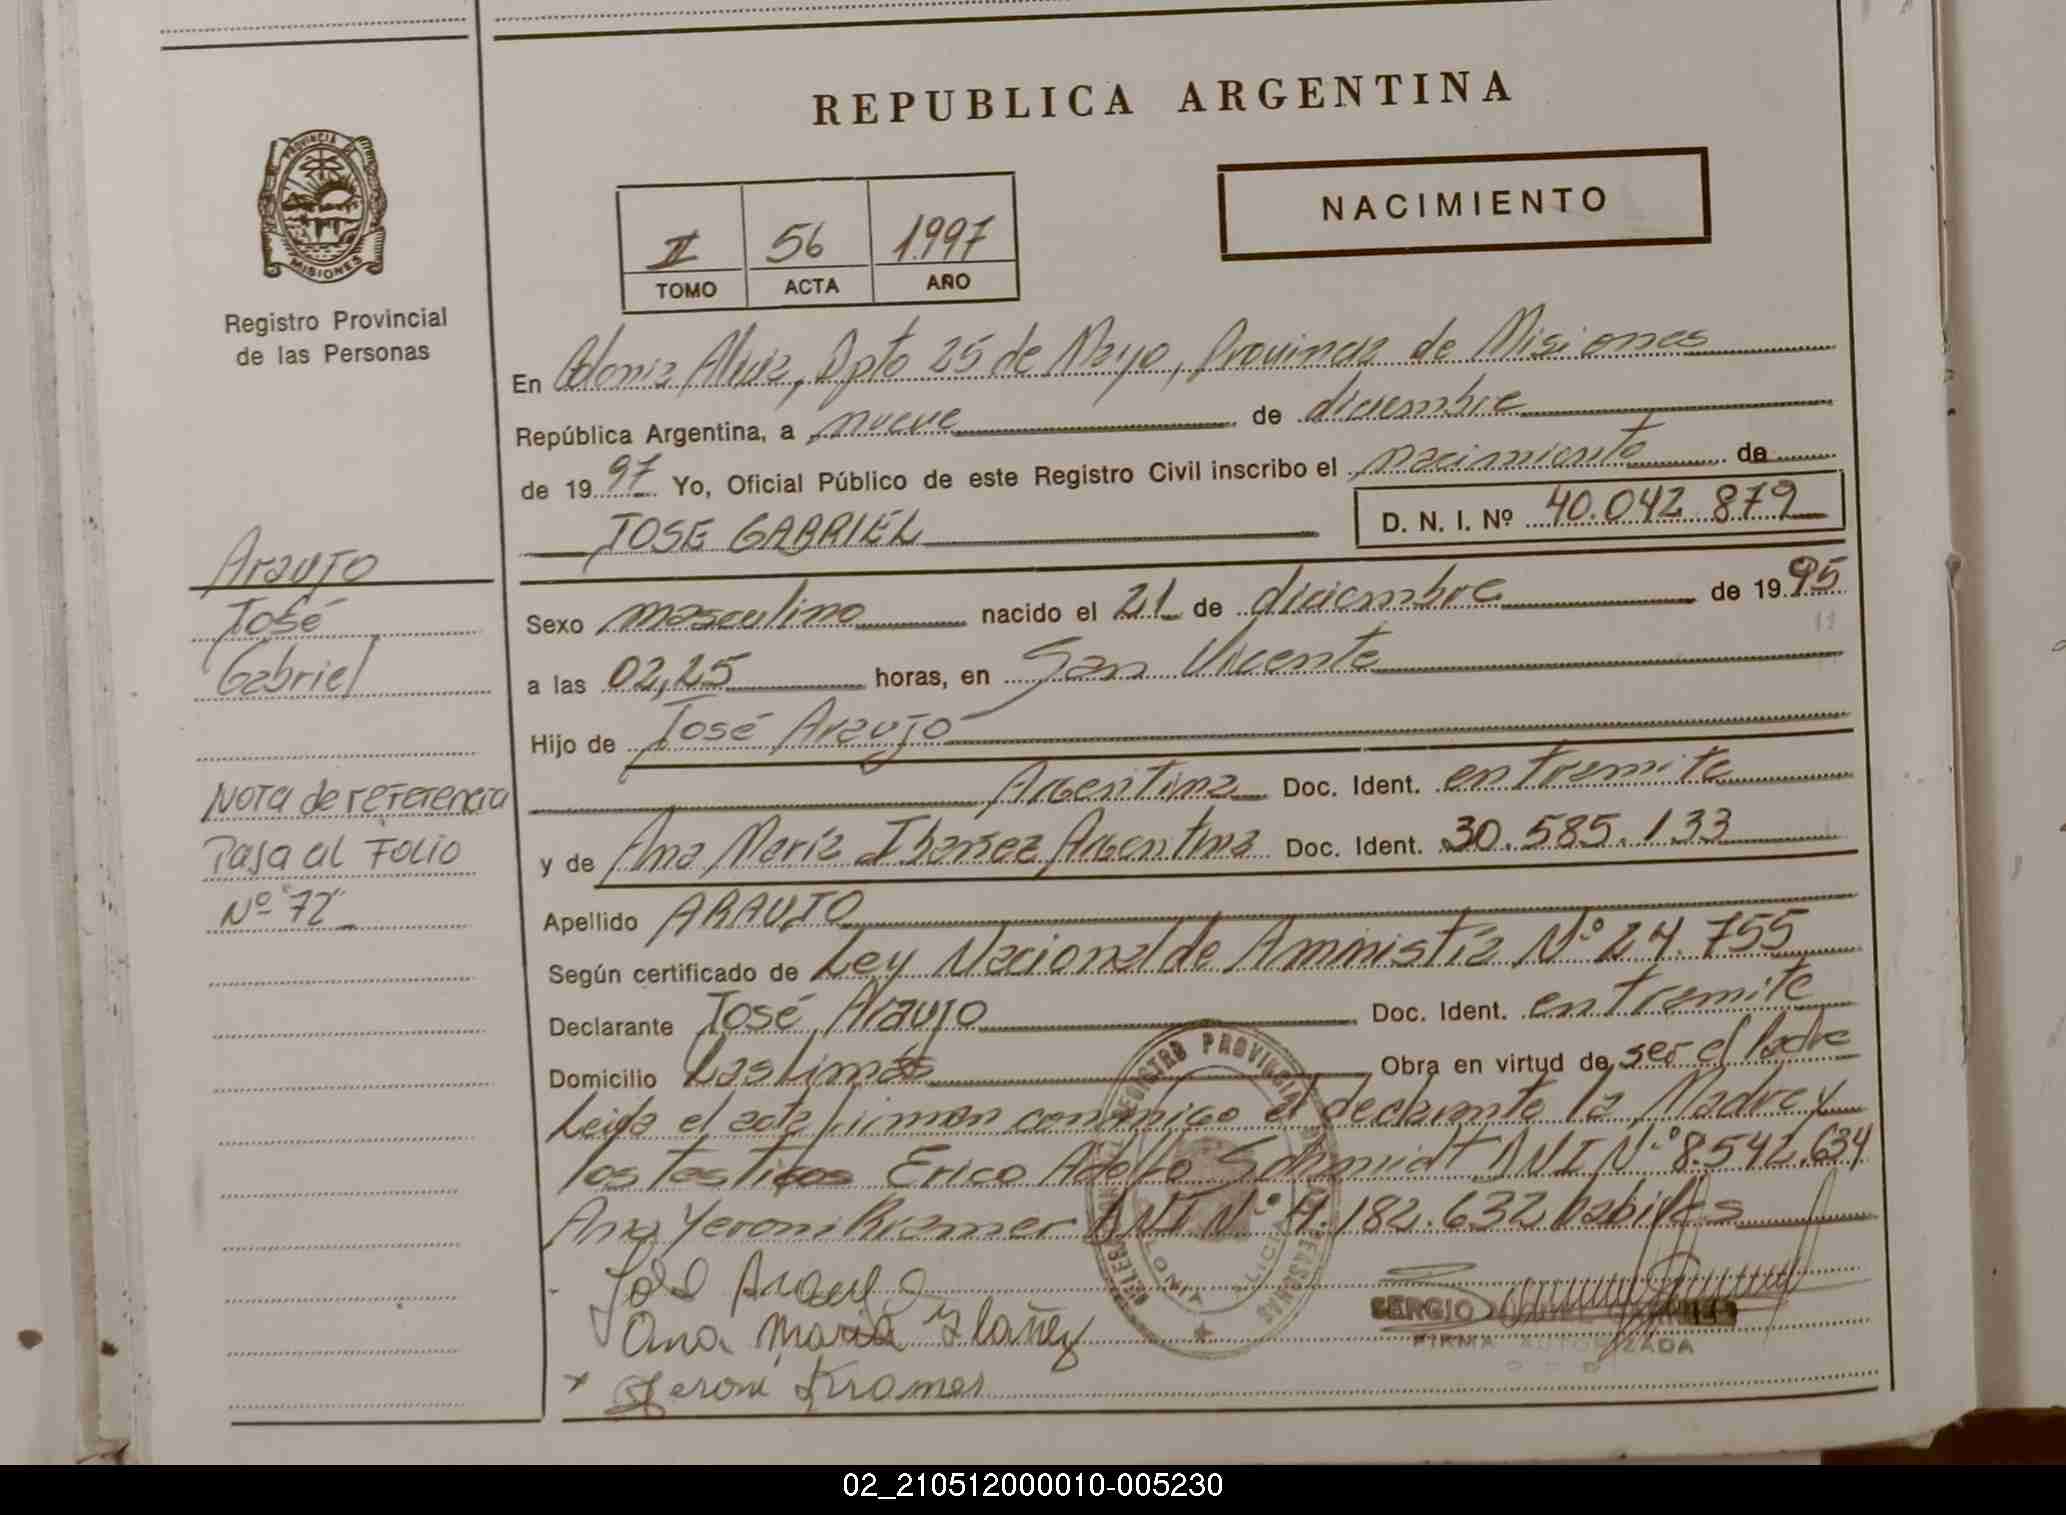 REPUBLICA ARGENTINA
NACIMIENTO
II 56 1.997
TOMO ACTA AÑO
PROVINCIA DE
MISIONES
Registro Provincial
de las Personas
En Colonia Alicia, Dpto 25 de Mayo, Provincia de Misiones
República Argentina, a nueve de diciembre
de 1997 Yo, Oficial Público de este Registro Civil inscribo el nacimiento de
JOSE GABRIEL D. N. I. Nº 40.042.879
Araujo
José
Gabriel
Nota de referencia
Pasa al Folio
Nº "72"
Sexo masculino nacido el 21 de diciembre de 1995
a las 02,25 horas, en San Vicente
Hijo de José Araujo
Argentina Doc. Ident. en tramite
y de Ana María Ibañez Argentina Doc. Ident. 30.585.133
Apellido ARAUJO
Según certificado de Ley Nacional de Amnistía Nº 24.755
Declarante José Araujo Doc. Ident. en tramite
Domicilio Las Limas Obra en virtud de ser el Padre
Leída el acta firman conmigo el declarante la Madre y
los testigos Erico Adolfo Schmidt DNI Nº 8.542.634
Ana Yeroni Kramer DNI Nº 4.182.632 habiles
José Araujo
Ana Maria Ibañez
SERGIO
FIRMA AUTORIZADA
x Yeroni Kramer
REGISTRO PROVINCIAL DE LAS PERSONAS
COLONIA ALICIA
02_210512000010-005230